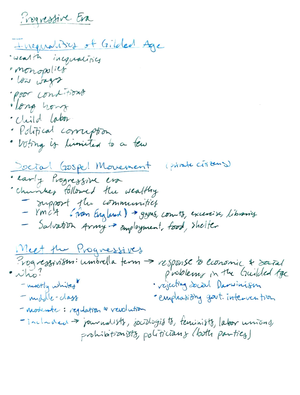 Progressive Era
Inequalities of Gilded Age
• wealth inequalities
• monopolies
• low wages
• poor conditions
• long hours
• child labor
• Political corruption
• Voting is limited to a few
Social Gospel Movement (private citizens)
• early Progressive era
• churches followed the wealthy
– support the communities
– YMCA (from England) → gyms, courts, exercise, libraries
– Salvation Army → employment, food, shelter
Meet the Progressives
Progressivism: umbrella term → response to economic & social problems in the Gilded Age
• Who?
– mostly whites*
– middle-class
– moderate: regulation ≠ revolution
– included → journalists, sociologists, feminists, labor unions, prohibitionists, politicians (both parties)
• rejecting Social Darwinism
• emphasizing govt. intervention